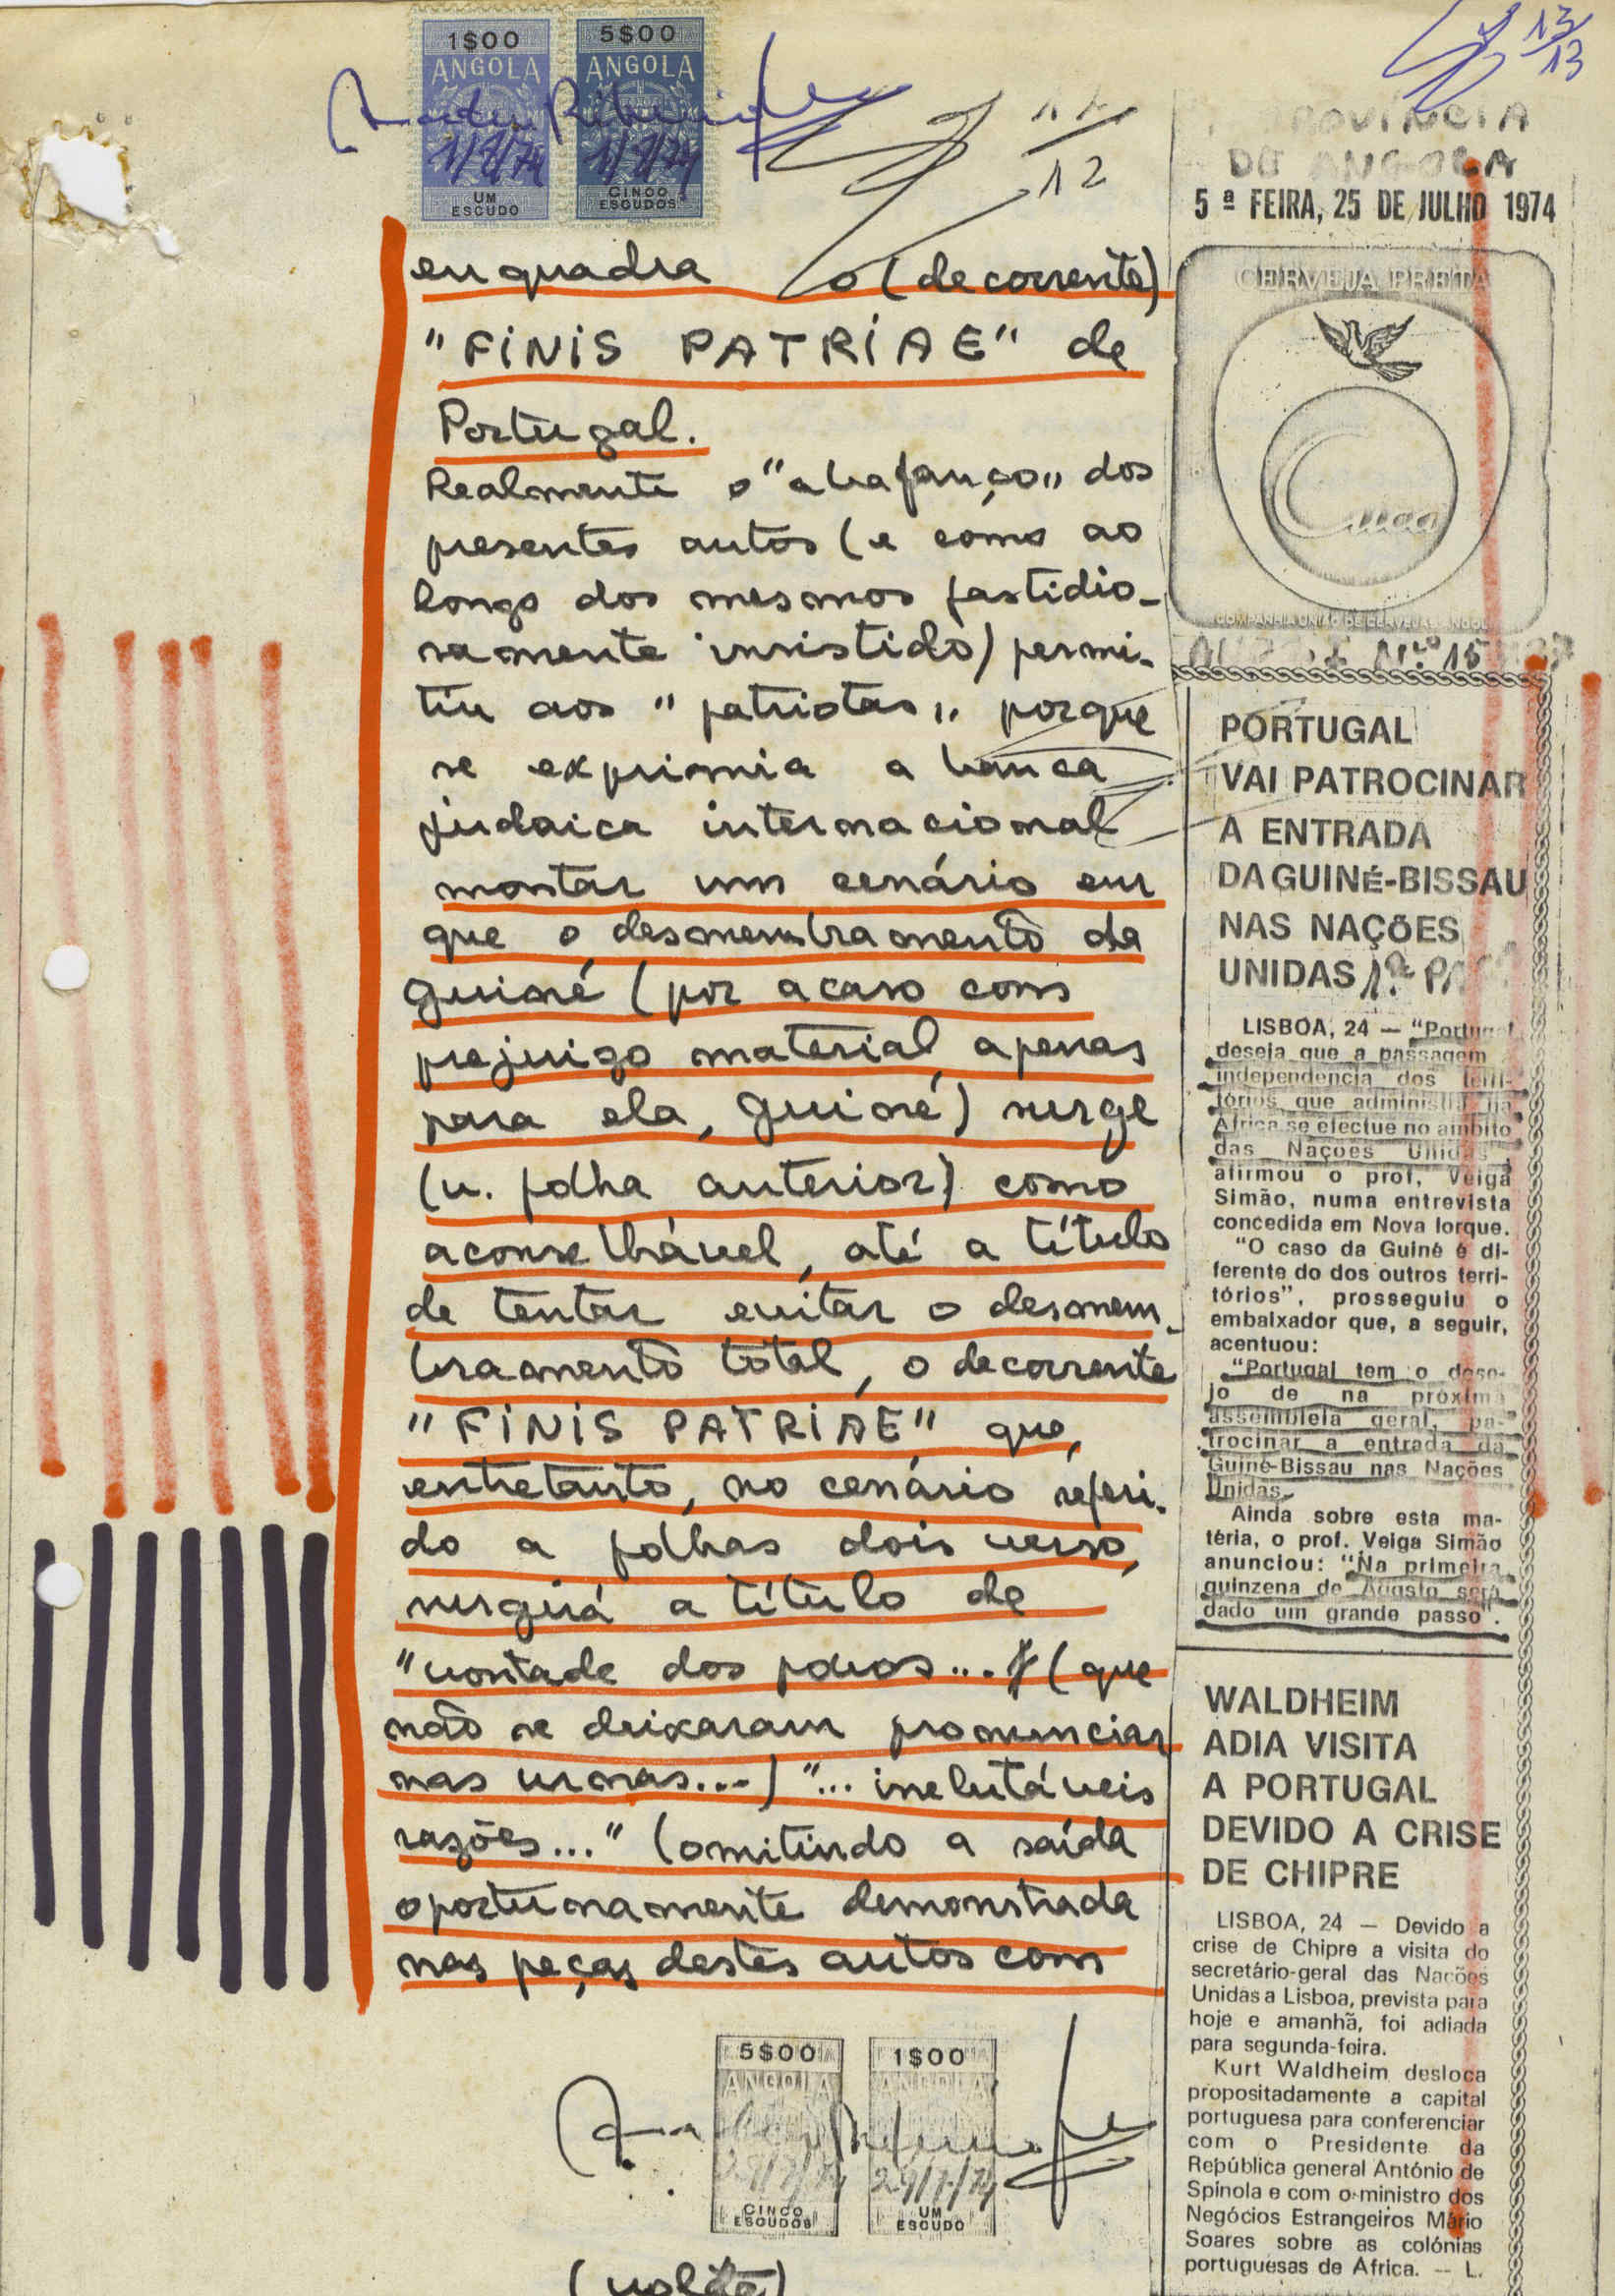 13/13
1$00
ANGOLA
1/8/74
UM
ESCUDO
5$00
ANGOLA
1/8/74
CINCO
ESCUDOS
12
enquadra o (decorrente)
"FINIS PATRIAE" de
Portugal.
Realmente o "abafanço" dos
presentes autos (e como ao
longo dos mesmos fastidio-
samente insistido) permi-
tiu aos "patriotas" porque
se exprimia a banca
judaica internacional
montar um cenário em
que o desmembramento da
Guiné (por acaso com
prejuizo material apenas
para ela, Guiné) surge
(v. folha anterior) como
aconselhável, até a título
de tentar evitar o desmem-
bramento total, o decorrente
"FINIS PATRIAE" que,
entretanto, no cenário referi-
do a folhas dois verso,
surgirá a título de
"vontade dos povos... (que
não se deixaram pronunciar
nas urnas...) "... inelutáveis
razões..." (omitindo a saída
oportunamente demonstrada
nas peças destes autos com
5$00
ANGOLA
29/7/74
CINCO
ESCUDOS
1$00
ANGOLA
29/7/74
UM
ESCUDO
(volta)
PROVÍNCIA
DE ANGOLA
5ª FEIRA, 25 DE JULHO 1974
CERVEJA PRETA
Cuca
COMPANHIA UNIÃO DE CERVEJAS ANGOLA
N.º 15
PORTUGAL
VAI PATROCINAR
A ENTRADA
DA GUINÉ-BISSAU
NAS NAÇÕES
UNIDAS 1.ª
LISBOA, 24 — "Portugal
deseja que a passagem
independencia dos terri-
tórios que administra na
Africa se efectue no ambito
das Nações Unidas",
afirmou o prof. Veiga
Simão, numa entrevista
concedida em Nova Iorque.
"O caso da Guiné é di-
ferente do dos outros terri-
tórios", prosseguiu o
embaixador que, a seguir,
acentuou:
"Portugal tem o dese-
jo de na próxima
assembleia geral, pa-
trocinar a entrada da
Guiné-Bissau nas Nações
Unidas
Ainda sobre esta ma-
téria, o prof. Veiga Simão
anunciou: "Na primeira
quinzena de Agosto será
dado um grande passo".
WALDHEIM
ADIA VISITA
A PORTUGAL
DEVIDO A CRISE
DE CHIPRE
LISBOA, 24 — Devido a
crise de Chipre a visita do
secretário-geral das Nações
Unidas a Lisboa, prevista para
hoje e amanhã, foi adiada
para segunda-feira.
Kurt Waldheim desloca
propositadamente a capital
portuguesa para conferenciar
com o Presidente da
República general António de
Spínola e com o ministro dos
Negócios Estrangeiros Mário
Soares sobre as colónias
portuguesas de Africa. — L.